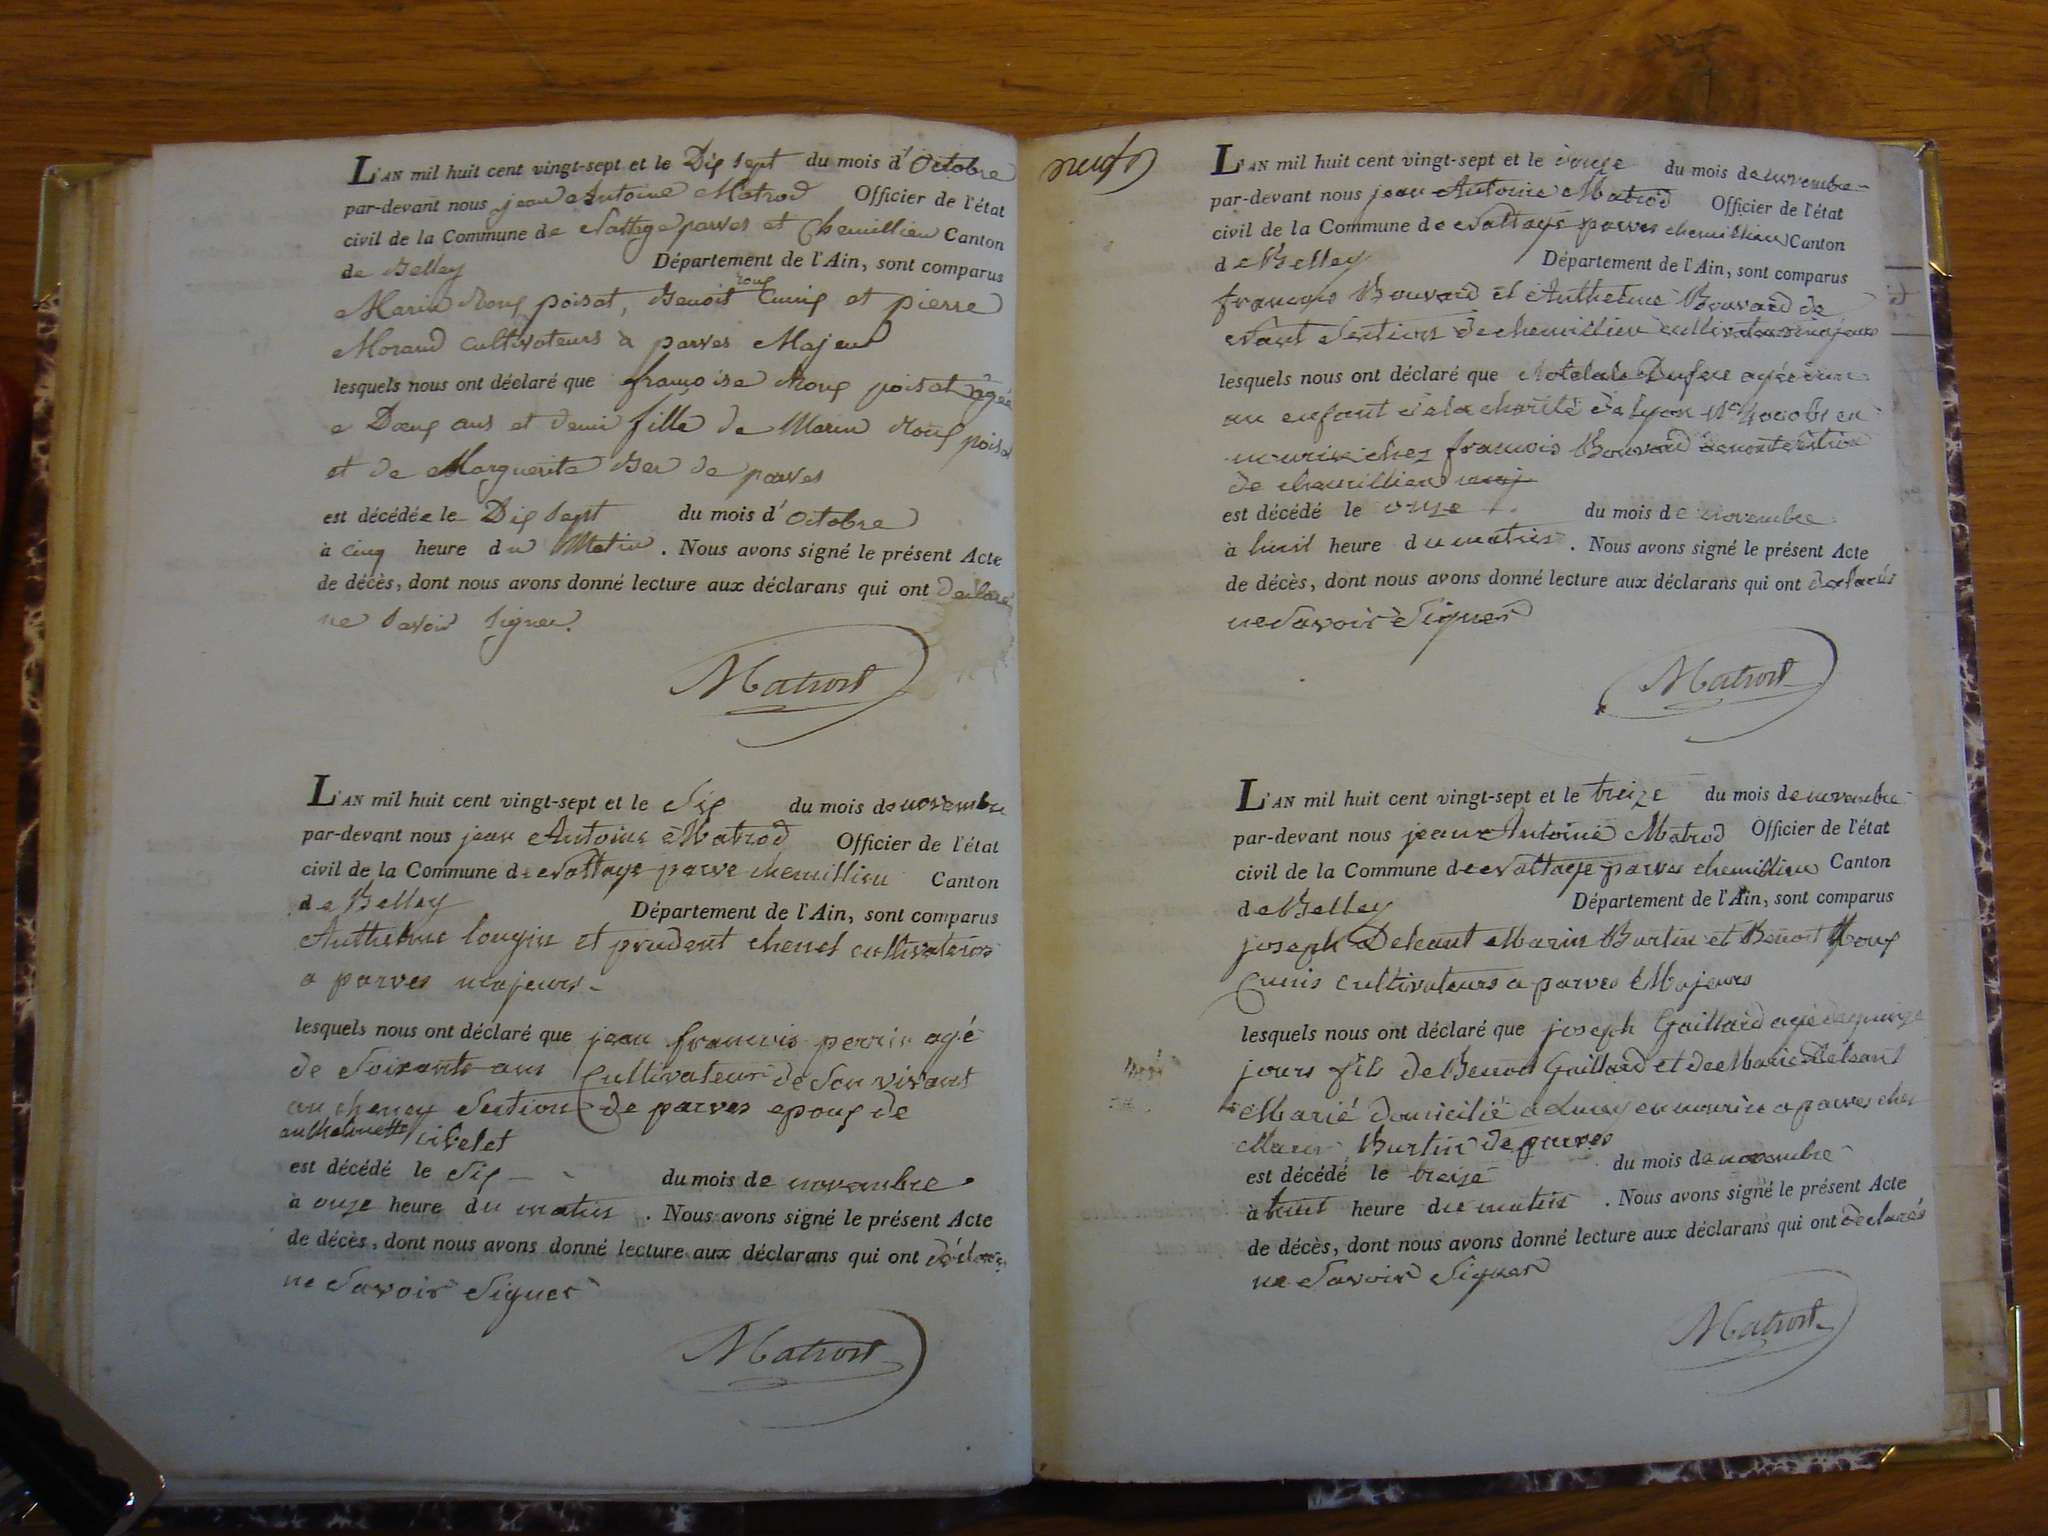 L'AN mil huit cent vingt-sept et le Dix sept du mois d'Octobre
par-devant nous jean Antoine Matrod Officier de l'état
civil de la Commune de Nattage parves et Chemillieu Canton
de Belley Département de l'Ain, sont comparus
Marin Roux poisat, Benoit roux Cunis et pierre
Morand cultivateurs à parves Majeur
lesquels nous ont déclaré que françoise Roux poisat âgée
e Doeux ans et demi fille de Marin Roux poisat
et de Marguerite Ber de parves
est décédée le Dix sept du mois d'Octobre
à cinq heure du Matin. Nous avons signé le présent Acte
de décès, dont nous avons donné lecture aux déclarans qui ont declaré
ne savoir signer.
Matrod
L'AN mil huit cent vingt-sept et le Six du mois de novembre
par-devant nous jean Antoine Matrod Officier de l'état
civil de la Commune de Nattage parve chemillieu Canton
de Belley Département de l'Ain, sont comparus
Anthelme longin et prudent chenel cultivateurs
a parves majeurs
lesquels nous ont déclaré que jean francois perrin agé
de Soixante ans Cultivateur de Son vivant
au cheney Section de parves epoux de
anthelmette sibelet
est décédé le Six du mois de novembre
à onze heure du matin. Nous avons signé le présent Acte
de décès, dont nous avons donné lecture aux déclarans qui ont déclarés
ne Savoir Signer
Matrod
neuf
L'AN mil huit cent vingt-sept et le onze du mois de novembre
par-devant nous jean Antoine Matrod Officier de l'état
civil de la Commune de Nattage parves chemillieu Canton
de Belley Département de l'Ain, sont comparus
françois Bouvard et Anthelme Bouvard de
Nant Section de chemillieu cultivateurs majeurs
lesquels nous ont déclaré que Dufeu agé d'un
an enfant de la charité de Lyon en
nourice chez francois Bouvard de nant Section
de chemillieu
est décédé le onze du mois de novembre
à huit heure du matin. Nous avons signé le présent Acte
de décès, dont nous avons donné lecture aux déclarans qui ont declarés
ne Savoir Signer
Matrod
L'AN mil huit cent vingt-sept et le treize du mois de novembre
par-devant nous jean Antoine Matrod Officier de l'état
civil de la Commune de Nattage parves chemillieu Canton
de Belley Département de l'Ain, sont comparus
joseph Deleant Marin Burtin et Benoit Roux
Cunis cultivateurs a parves Majeurs
lesquels nous ont déclaré que joseph Gaillard agé de quinze
jours fils de Benoit Gaillard et de Marie Deleant
Marié domicilié a Lucey en nourice a parves chez
Marin Burtin de parves
est décédé le treize du mois de novembre
à huit heure du matin. Nous avons signé le présent Acte
de décès, dont nous avons donné lecture aux déclarans qui ont declarés
ne Savoir Signer
Matrod